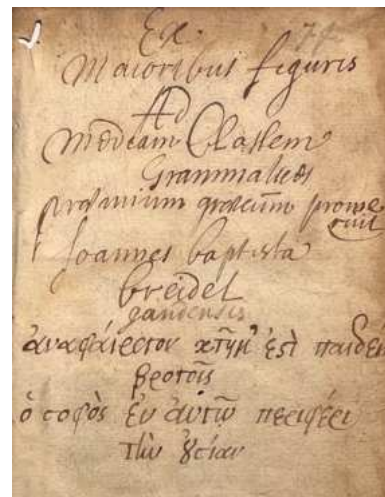 Ex.
74
Maioribus figuris
Ad
Mediam Classem
Grammatices
proemium graecum prome
ruit
Joannes baptista
breidel
gandensis
ἀναφαίρετον κτῆμ' ἐστὶ παιδεί
βροτοῖς
ὁ σοφὸς ἐν αὑτῷ περιφέρει
τὴν οὐσίαν